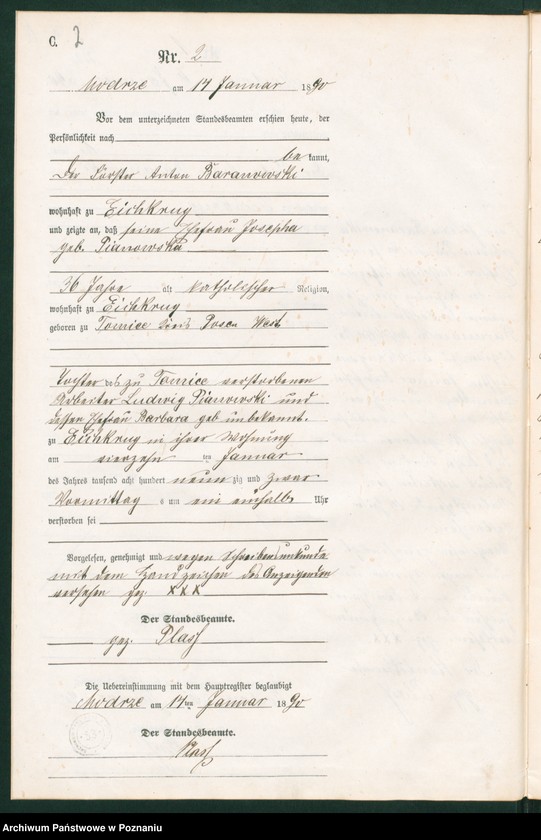 C. 2
Nr. 2
Modrze am 14 Januar 1890
Vor dem unterzeichneten Standesbeamten erschien heute, der
Persönlichkeit nach
be kannt,
Der Förster Anton Baranowski
wohnhaft zu Eichkrug
und zeigte an, daß seine Ehefrau Josepha
geb. Pianowska
36 Jahre alt katholischer Religion,
wohnhaft zu Eichkrug
geboren zu Tomice Kreis Posen West
Tochter des zu Tomice verstorbenen
Arbeiter Ludwig Pianowski und
dessen Ehefrau Barbara geb unbekannt.
zu Eichkrug in ihrer Wohnung
am vierzehn ten Januar
des Jahres tausend acht hundert neun zig und zwar
Vormittag s um ein einhalb Uhr
verstorben sei
Vorgelesen, genehmigt und wegen Schreibensunkunde
mit dem Handzeichen des Anzeigenden
versehen gez. XXX
Der Standesbeamte.
gez. Plass
Die Uebereinstimmung mit dem Hauptregister beglaubigt
Modrze am 14ten Januar 1890
Der Standesbeamte.
Plass
Archiwum Państwowe w Poznaniu